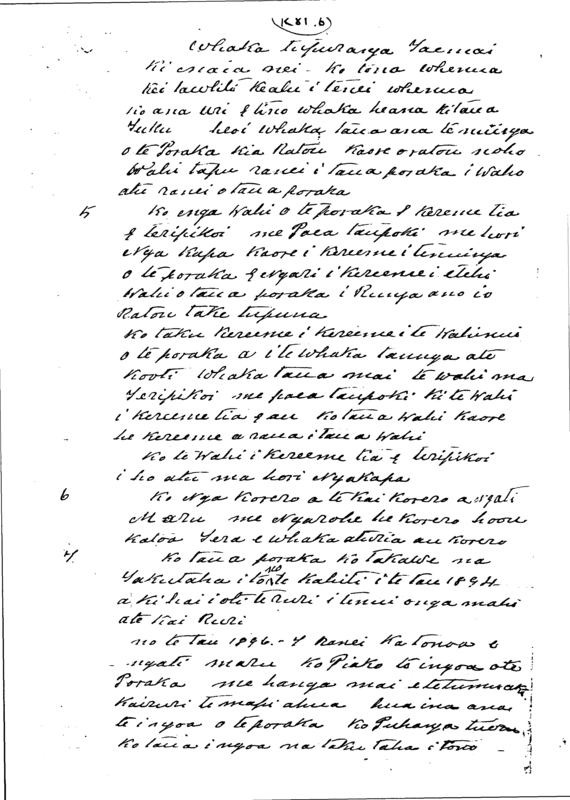 (K81.b)
Whaka tupuranga Iaemai
ki enaia nei - ko tona whenua
kei tawhiti keahu i tenei whenua
ko ana uri e tino whaka heana ki taua
Tuku heoi whaka taua ana te nuinga
o te Poraka kia Ratou kaore o ratou noho
Wahi tapu ranei i taua poraka i waho
atu ranei o taua poraka
5 Ko enga Wahi o te poraka e kereme tia
e teripikoi me Paea taupoki me hori
Nga Kapa Kaore i Kereeme i te nuinga
o te poraka e Ngari i kereeme i etehi
Wahi o taua poraka i Runga ano io
Ratou take tupuna
Ko taku Kereeme i kereeme i te Wahinui
o te poraka a i te whaka taunga ate
Kooti Whaka taua mai te wahi ma
Teripikoi me paea taupoki ki te Wahi
i kereeme tia e au ko taua Wahi Kaore
he kereeme a raua i taua Wahi
Ko te Wahi i Kereeme tia e teripikoi
i ho atu ma hori Ngakapa
6 Ko Nga Korero a te kai korero a ngati
Maru me Ngarohe he korero hoou
katoa Tera e whaka ahuria au korero
7 Ko taua poraka ko takawe na
Takutaha i tono te kahiti i te tau 1894
a ki hai i oti te ruri i tenui onga mahi
ate kai Ruri
no te tau 1896.-7 ranei ka tonoa e
ngati maru ko Piako te ingoa ote
Poraka me hanga mai e te tumuaki
kairuri te mapi ahua hua ina ana
te ingoa o te poraka ko Puhanga
ko taua ingoa na taku taha i tono